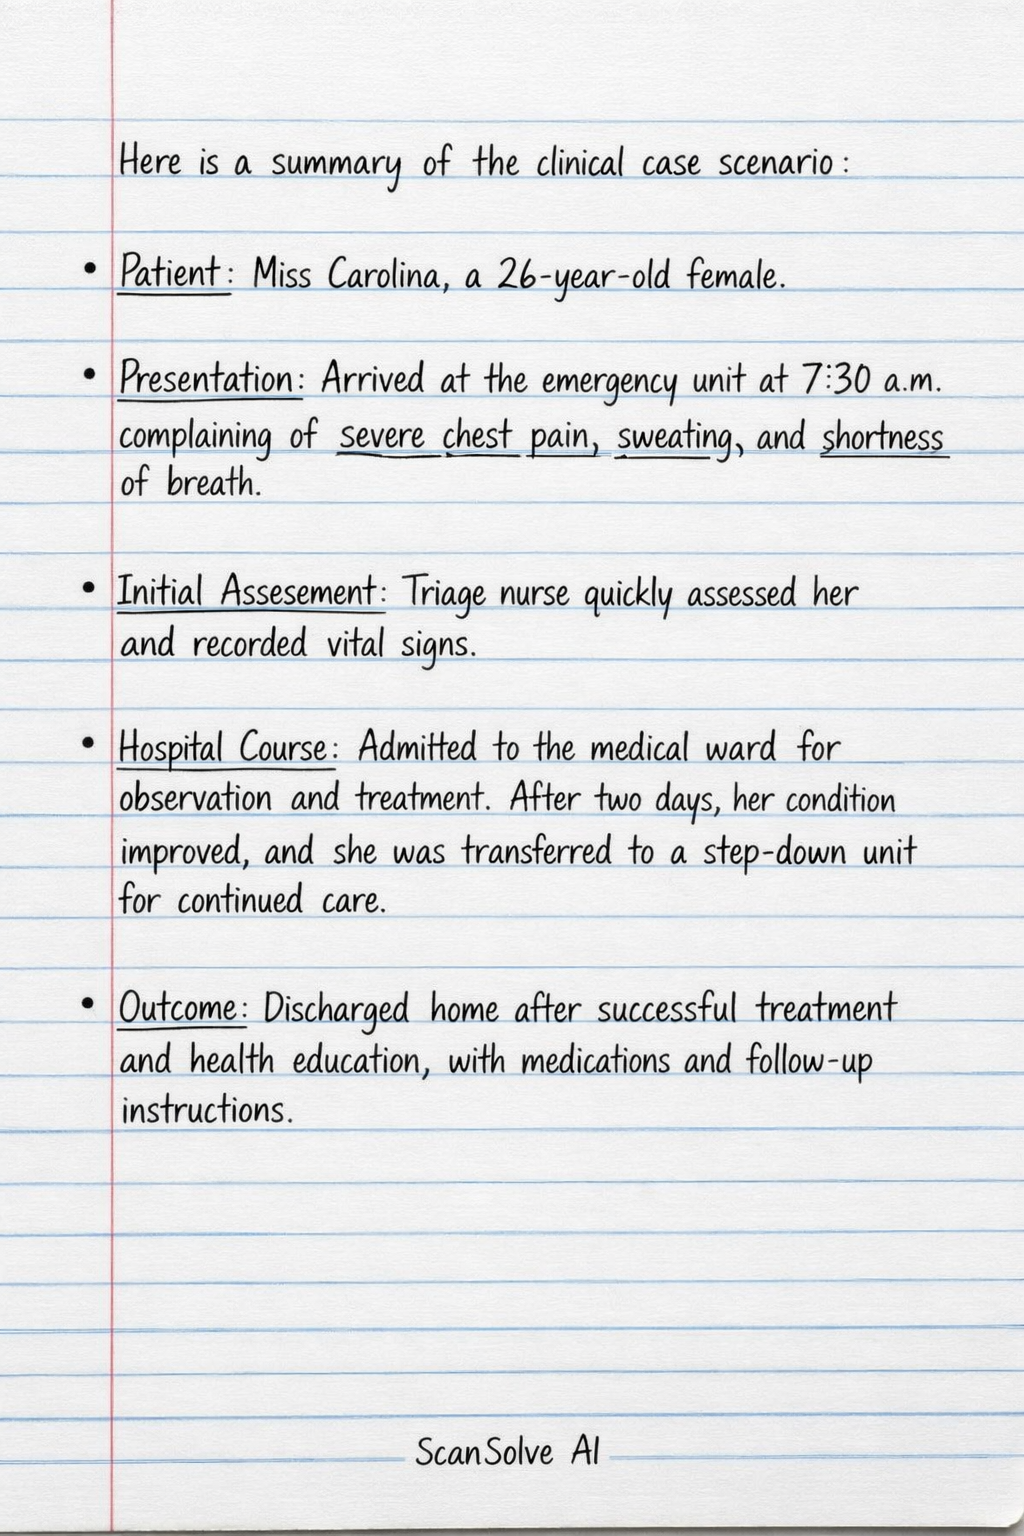 Here is a summary of the clinical case scenario:
• Patient: Miss Carolina, a 26-year-old female.
• Presentation: Arrived at the emergency unit at 7:30 a.m.
complaining of severe chest pain, sweating, and shortness
of breath.
• Initial Assesement: Triage nurse quickly assessed her
and recorded vital signs.
• Hospital Course: Admitted to the medical ward for
observation and treatment. After two days, her condition
improved, and she was transferred to a step-down unit
for continued care.
• Outcome: Discharged home after successful treatment
and health education, with medications and follow-up
instructions.
ScanSolve AI